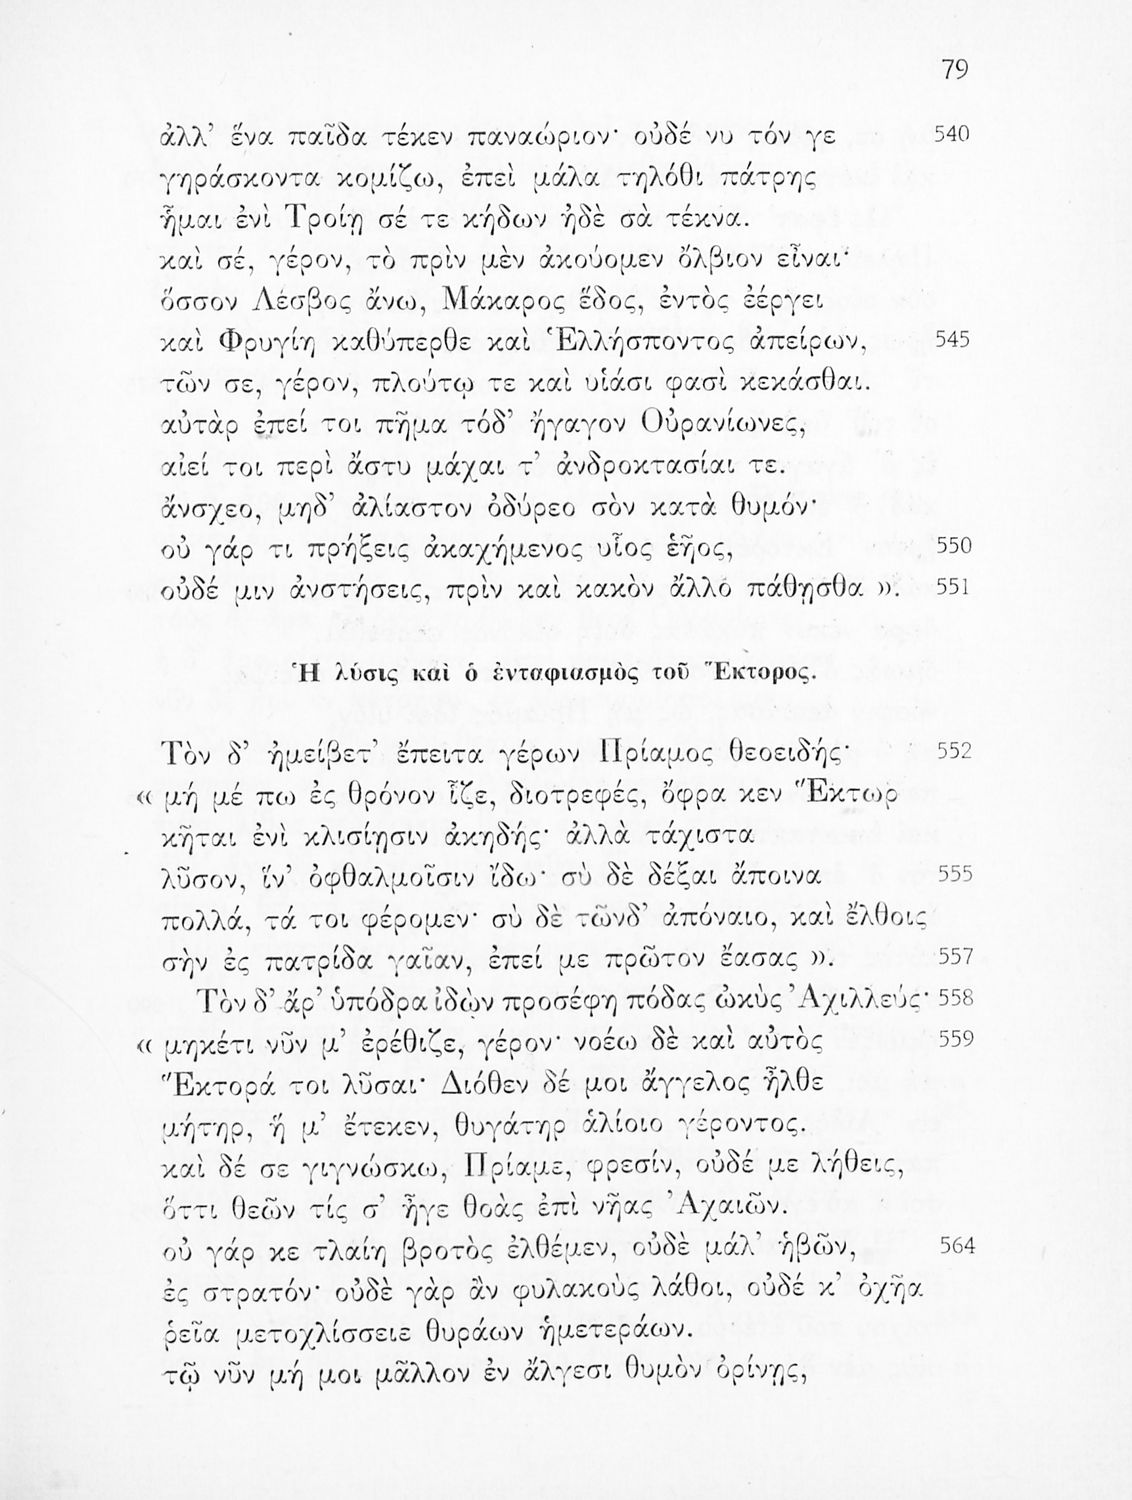 79
ἀλλ’ ἕνα παῖδα τέκεν παναώριον· οὐδέ νυ τόν γε 540
γηράσκοντα κομίζω, ἐπεὶ μάλα τηλόθι πάτρης
ἧμαι ἐνὶ Τροίῃ σέ τε κήδων ἠδὲ σὰ τέκνα.
καὶ σέ, γέρον, τὸ πρὶν μὲν ἀκούομεν ὄλβιον εἶναι·
ὅσσον Λέσβος ἄνω, Μάκαρος ἕδος, ἐντὸς ἐέργει
καὶ Φρυγίη καθύπερθε καὶ Ἑλλήσποντος ἀπείρων, 545
τῶν σε, γέρον, πλούτῳ τε καὶ υἱάσι φασὶ κεκάσθαι.
αὐτὰρ ἐπεί τοι πῆμα τόδ’ ἤγαγον Οὐρανίωνες,
αἰεί τοι περὶ ἄστυ μάχαι τ’ ἀνδροκτασίαι τε.
ἄνσχεο, μηδ’ ἀλίαστον ὀδύρεο σὸν κατὰ θυμόν·
οὐ γάρ τι πρήξεις ἀκαχήμενος υἷος ἑῆος, 550
οὐδέ μιν ἀνστήσεις, πρὶν καὶ κακὸν ἄλλο πάθῃσθα ». 551
Ἡ λύσις καὶ ὁ ἐνταφιασμὸς τοῦ Ἕκτορος.
Τὸν δ’ ἠμείβετ’ ἔπειτα γέρων Πρίαμος θεοειδής· 552
« μή μέ πω ἐς θρόνον ἷζε, διοτρεφές, ὄφρα κεν Ἕκτωρ
κῆται ἐνὶ κλισίῃσιν ἀκηδής· ἀλλὰ τάχιστα
λῦσον, ἵν’ ὀφθαλμοῖσιν ἴδω· σὺ δὲ δέξαι ἄποινα 555
πολλά, τά τοι φέρομεν· σὺ δὲ τῶνδ’ ἀπόναιο, καὶ ἔλθοις
σὴν ἐς πατρίδα γαῖαν, ἐπεί με πρῶτον ἔασας ». 557
Τὸν δ’ ἄρ’ ὑπόδρα ἰδὼν προσέφη πόδας ὠκὺς Ἀχιλλεύς· 558
« μηκέτι νῦν μ’ ἐρέθιζε, γέρον· νοέω δὲ καὶ αὐτὸς 559
Ἕκτορά τοι λῦσαι· Διόθεν δέ μοι ἄγγελος ἦλθε
μήτηρ, ἥ μ’ ἔτεκεν, θυγάτηρ ἁλίοιο γέροντος.
καὶ δέ σε γιγνώσκω, Πρίαμε, φρεσίν, οὐδέ με λήθεις,
ὅττι θεῶν τίς σ’ ἦγε θοὰς ἐπὶ νῆας Ἀχαιῶν.
οὐ γάρ κε τλαίη βροτὸς ἐλθέμεν, οὐδὲ μάλ’ ἡβῶν, 564
ἐς στρατόν· οὐδὲ γὰρ ἂν φυλακοὺς λάθοι, οὐδέ κ’ ὀχῆα
ῥεῖα μετοχλίσσειε θυράων ἡμετεράων.
τῷ νῦν μή μοι μᾶλλον ἐν ἄλγεσι θυμὸν ὀρίνῃς,